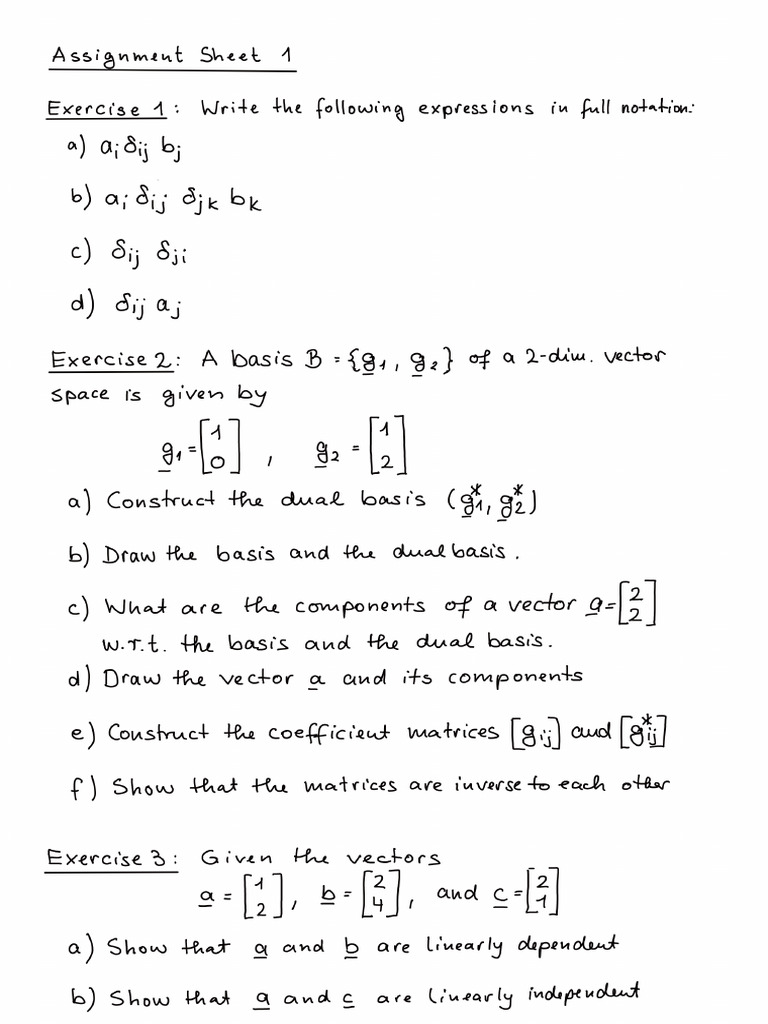 Assignment Sheet 1
Exercise 1: Write the following expressions in full notation:
a) aᵢ δᵢⱼ bⱼ
b) aᵢ δᵢⱼ δⱼₖ bₖ
c) δᵢⱼ δⱼᵢ
d) δᵢⱼ aⱼ
Exercise 2: A basis B = {g₁, g₂} of a 2-dim. vector
space is given by
g₁ = [1 0], g₂ = [1 2]
a) Construct the dual basis (g₁*, g₂*)
b) Draw the basis and the dual basis.
c) What are the components of a vector a = [2 2]
w.r.t. the basis and the dual basis.
d) Draw the vector a and its components
e) Construct the coefficient matrices [gᵢⱼ] and [g*ᵢⱼ]
f) Show that the matrices are inverse to each other
Exercise 3: Given the vectors
a = [1 2], b = [2 4], and c = [2 1]
a) Show that a and b are linearly dependent
b) Show that a and c are linearly independent